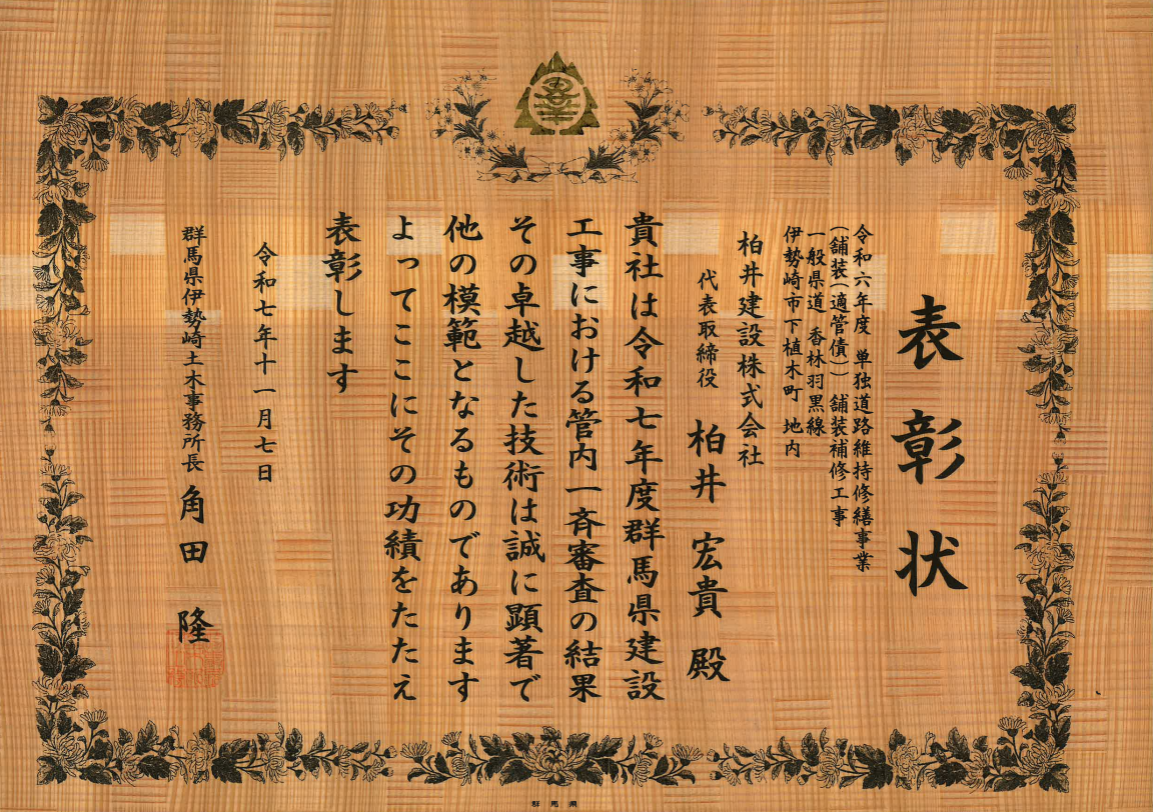 表彰状
令和六年度 単独道路維持修繕事業
(舗装(適管債)) 舗装補修工事
一般県道 香林羽黒線
伊勢崎市下植木町 地内
柏井建設株式会社
代表取締役 柏井 宏貴 殿
貴社は令和七年度群馬県建設
工事における管内一斉審査の結果
その卓越した技術は誠に顕著で
他の模範となるものであります
よってここにその功績をたたえ
表彰します
令和七年十一月七日
群馬県伊勢崎土木事務所長 角田 隆
群馬県